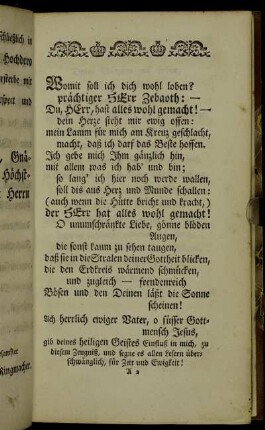 schließlich in
Hochdero
respect und
Gnä-
Höchst-
Herrn
Ringmacher.
Womit soll ich dich wohl loben?
prächtiger HErr Zebaoth: —
Du, HErr, hast alles wohl gemacht! —
dein Herze steht mir ewig offen:
mein Lamm für mich am Kreuz geschlacht,
macht, daß ich darf das Beste hoffen.
Ich gebe mich Ihm gänzlich hin,
mit allem was ich hab' und bin;
so lang' ich hier noch werde wallen,
soll dis aus Herz und Munde schallen:
(auch wenn die Hütte bricht und kracht,)
der HErr hat alles wohl gemacht!
O unumschränkte Liebe, gönne blöden
Augen,
die sonst kaum zu sehen taugen,
daß sie in die Stralen deiner Gottheit blicken,
die den Erdkreis wärmend schmücken,
und zugleich — freudenreich
Bösen und den Deinen läßt die Sonne
scheinen!
Ach herrlich ewiger Vater, o süsser Gott-
mensch Jesus,
gib deines heiligen Geistes Einfluß in mich, zu
diesem Zeugniß, und segne es allen Lesern über-
schwänglich, für Zeit und Ewigkeit!
A 2